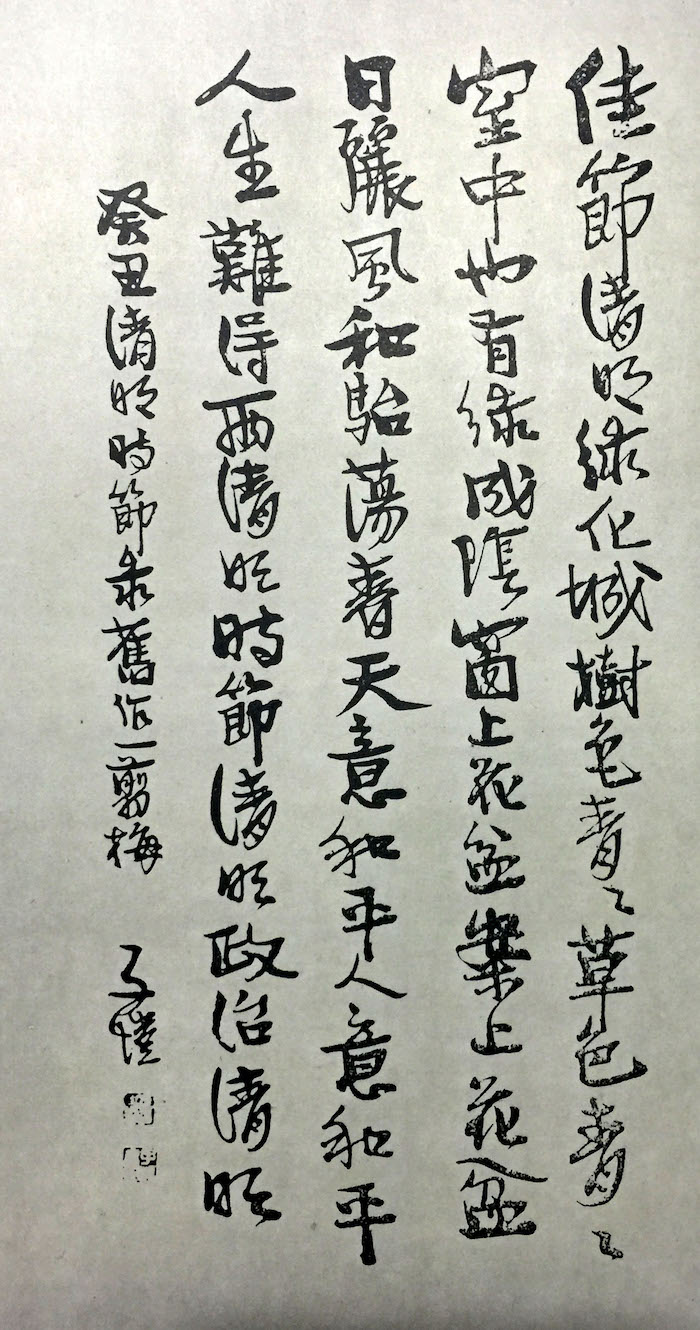 佳節清明綠化城樹色青〻草色青〻
室中也有綠成陰窗上花盆案上花盆
日麗風和駘蕩春天意和平人意和平
人生難得兩清明時節清明政治清明
癸丑清明時節录舊作一翦梅 子愷